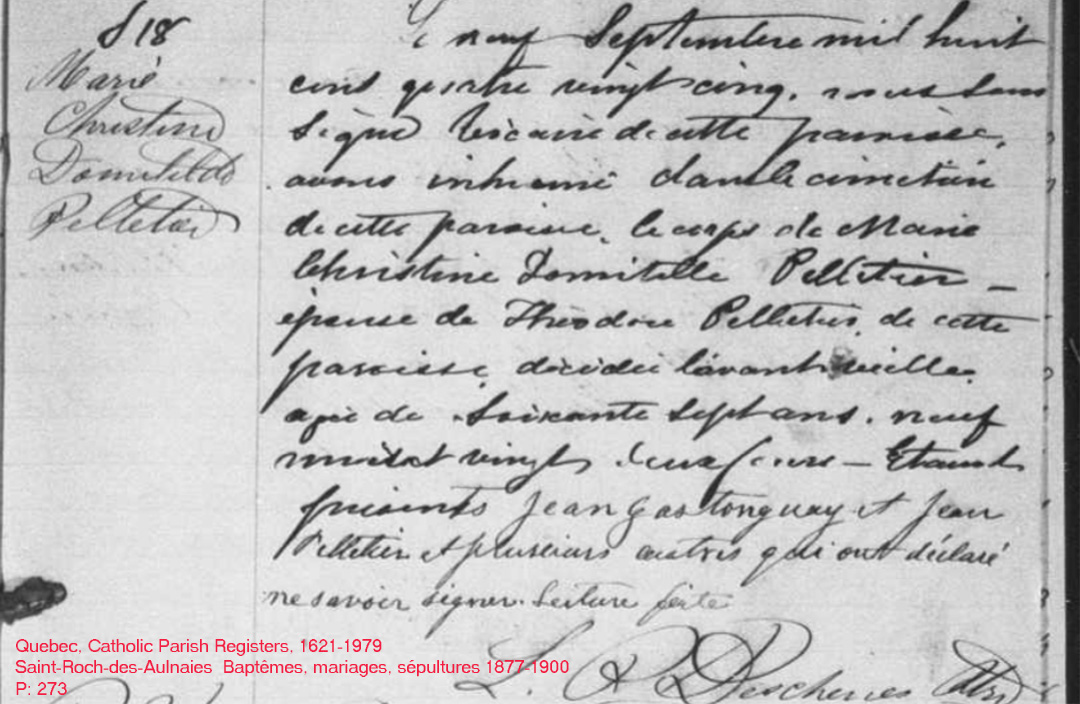 S 18
Marie
Christine
Domitilde
Pelletier
Le neuf Septembre mil huit
cent quatre vingt cinq, nous sous
signé vicaire de cette paroisse,
avons inhumé dans le cimetière
de cette paroisse, le corps de Marie
Christine Domitille Pelletier –
épouse de Theodore Pelletier, de cette
paroisse, décédée l'avant veille
agée de soixante sept ans, neuf
mois et vingt deux jours – Etaient
présents Jean Gastonguay et Jean
Pelletier et plusieurs autres qui ont déclaré
ne savoir signer. Lecture faite
Deschenes Ptre
Quebec, Catholic Parish Registers, 1621-1979
Saint-Roch-des-Aulnaies Baptêmes, mariages, sépultures 1877-1900
P: 273